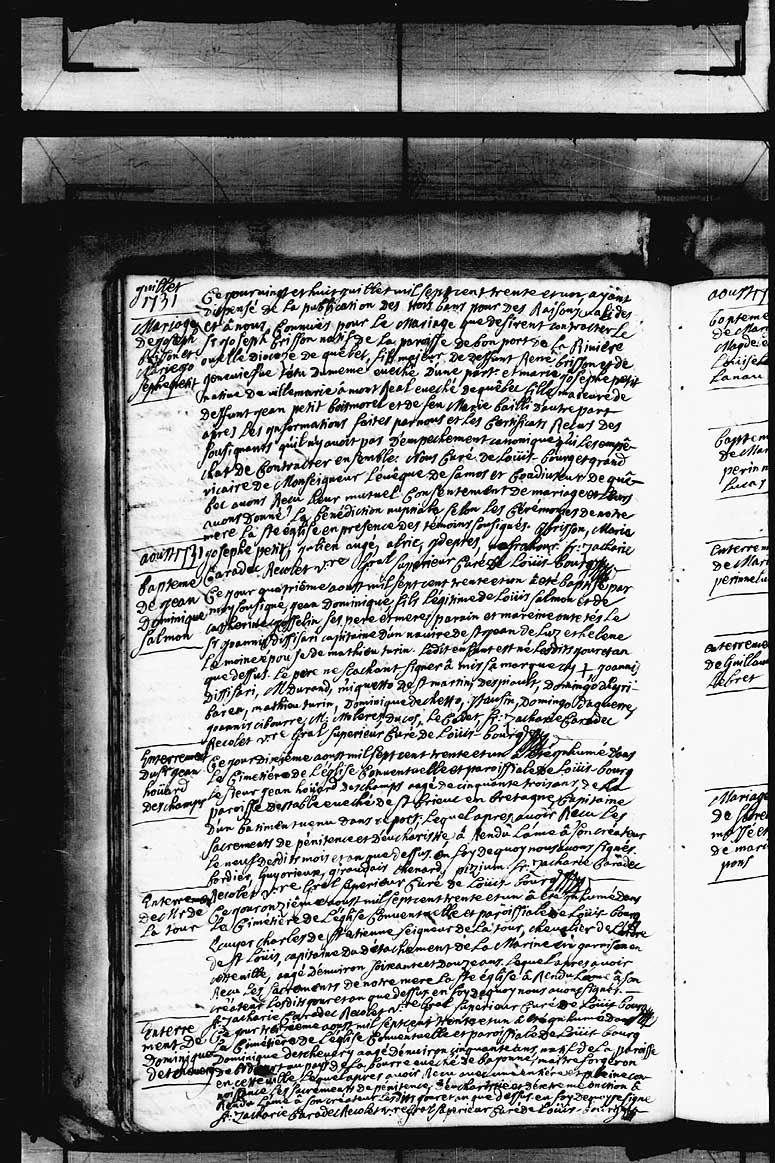 juillet
1731
Mariage
de joseph
Brisson et
Marie jo
sephe petit
Ce jour vingt et huit juillet mil sept cent trente et un, ayant
dispensé de la publication des trois bans pour des Raisons valides
et à nous Connuës pour le Mariage que desirent contracter le
Sr joseph Brisson natif de la paroisse de bon port de la Riviere
ouelle diocese de quebec, fils majeur de deffunt René brisson et de
genevieve Tetu du meme evéché d'une part et marie josephe petit
native de villemarie à mont Real evéché de quebec fille majeure de
deffunt jean petit boismorel et de feu Marie bailli d'autre part
apres les jnformations faites par nous et les Certificats Recus des
soussignants qu'il n'y avoit pas d'empechement canonique qui les empê-
chat de Contracter ensemble. Nous Curé de Loüis-bourg et grand
vicaire de Monseigneur L'évêque de Samos et Coadjuteur de qué-
bec avons Recu leur mutuel Consentement de mariage et leurs
avons donné La bénédiction nuptiale selon les Cérémonies de notre
mere La ste église en presence des témoins soussignés. j brisson, Marie
josephe petit, fr. Zacharie
Caradec Recolet v.re Gral superieur Curé de Loüis bourg
aoust 1731
baptême
de jean
Dominique
Salmon
Ce jour quatrième aoust mil sept cent trente et un à été baptisé par
moy soussigné jean Dominique fils Légitime de Loüis Salmon et de
catherine josselin ses pere et meres parain et mareine ont etés le
Sr joannis Dissisari capitaine d'un navire de st jean de Luz et helene
Le moine epouse de mathieu turin. Ledit enfant est né Lesdits jour et an
que dessus. Le pere ne scachant signer à mis sa marque + joannis
Dissisari, M. Durand, miquetto de st martin, Domingo
mathieu turin, Dominique detchetto,
joannis cibourre, fr. Zacharie Caradec
Recolet v.re Gral superieur Curé de Loüis-bourg
Enterrement
du Sr jean
hoüard
deschamps
Ce jour dixième aoust mil sept cent trente et un à été jnhumé dans
Le Cimetière de L'église Conventuelle et paroissiale de Loüis-bourg
Le Sieur jean hoüard deschamps aagé de cinquante trois ans, de La
paroisse d'estable evéché de st Brieuc en bretagne, Capitaine
d'un batiment venu dans ce port. Lequel apres avoir Recu Les
sacrements de pénitence et d'eucharistie à Rendu L'ame à son créateur
Le neuf desdits mois et an que dessus. en foy de quoy nous avons signés.
bordier, Guyorieux, giraudais chenard, fr. Zacharie Caradec
Recolet v.re Gral superieur Curé de Loüis bourg
Enterrement
de Mr de
La tour
Ce jour onzième aoust mil sept cent trente et un à été jnhumé dans
Le Cimetière de L'église Conventuelle et paroissiale de Loüis-bourg
Ecuyer Charles de st etienne seigneur de La tour, chevalier de L'ordre
de st Loüis, capitaine du détachement de La Marine en garnison en
cette ville, aagé d'environ soixante et douze ans. Lequel apres avoir
Recu Les Sacrements de notre mere La ste église à Rendu L'ame à son
créateur Lesdits jour et an que dessus. en foy de quoy nous avons signés
fr. Zacharie Caradec Recolet v.re Gral superieur Curé de Loüis bourg
Enterre
ment de
Dominique
detcheverry
Ce jour treizieme aoust mil sept cent trente et un à été jnhumé dans
Le Cimetière de L'église Conventuelle et paroissiale de Loüis-bourg
Dominique detcheverry aagé d'environ cinquante ans, natif de La paroisse
de au pays de La bourre evéché de bayonne, maitre forgeron
en cette ville. Lequel apres avoir Recu avec une entière et pleine con-
noissance Les Sacrements de pénitence, d'eucharistie et d'extreme onction à
Rendu L'ame à son créateur Lesdits jour et an que dessus. en foy de quoy je signe
fr. Zacharie Caradec Recolet v.re Gral superieur Curé de Loüis-bourg
aoust
baptême
de Mari
Magde
Louise
Lanau
baptem
de Mari
perinn
Lucas
Enterrem
de Mari
perinne Lu
enterreme
de Guillau
Lebret
Mariage
de
et
de mari
pons